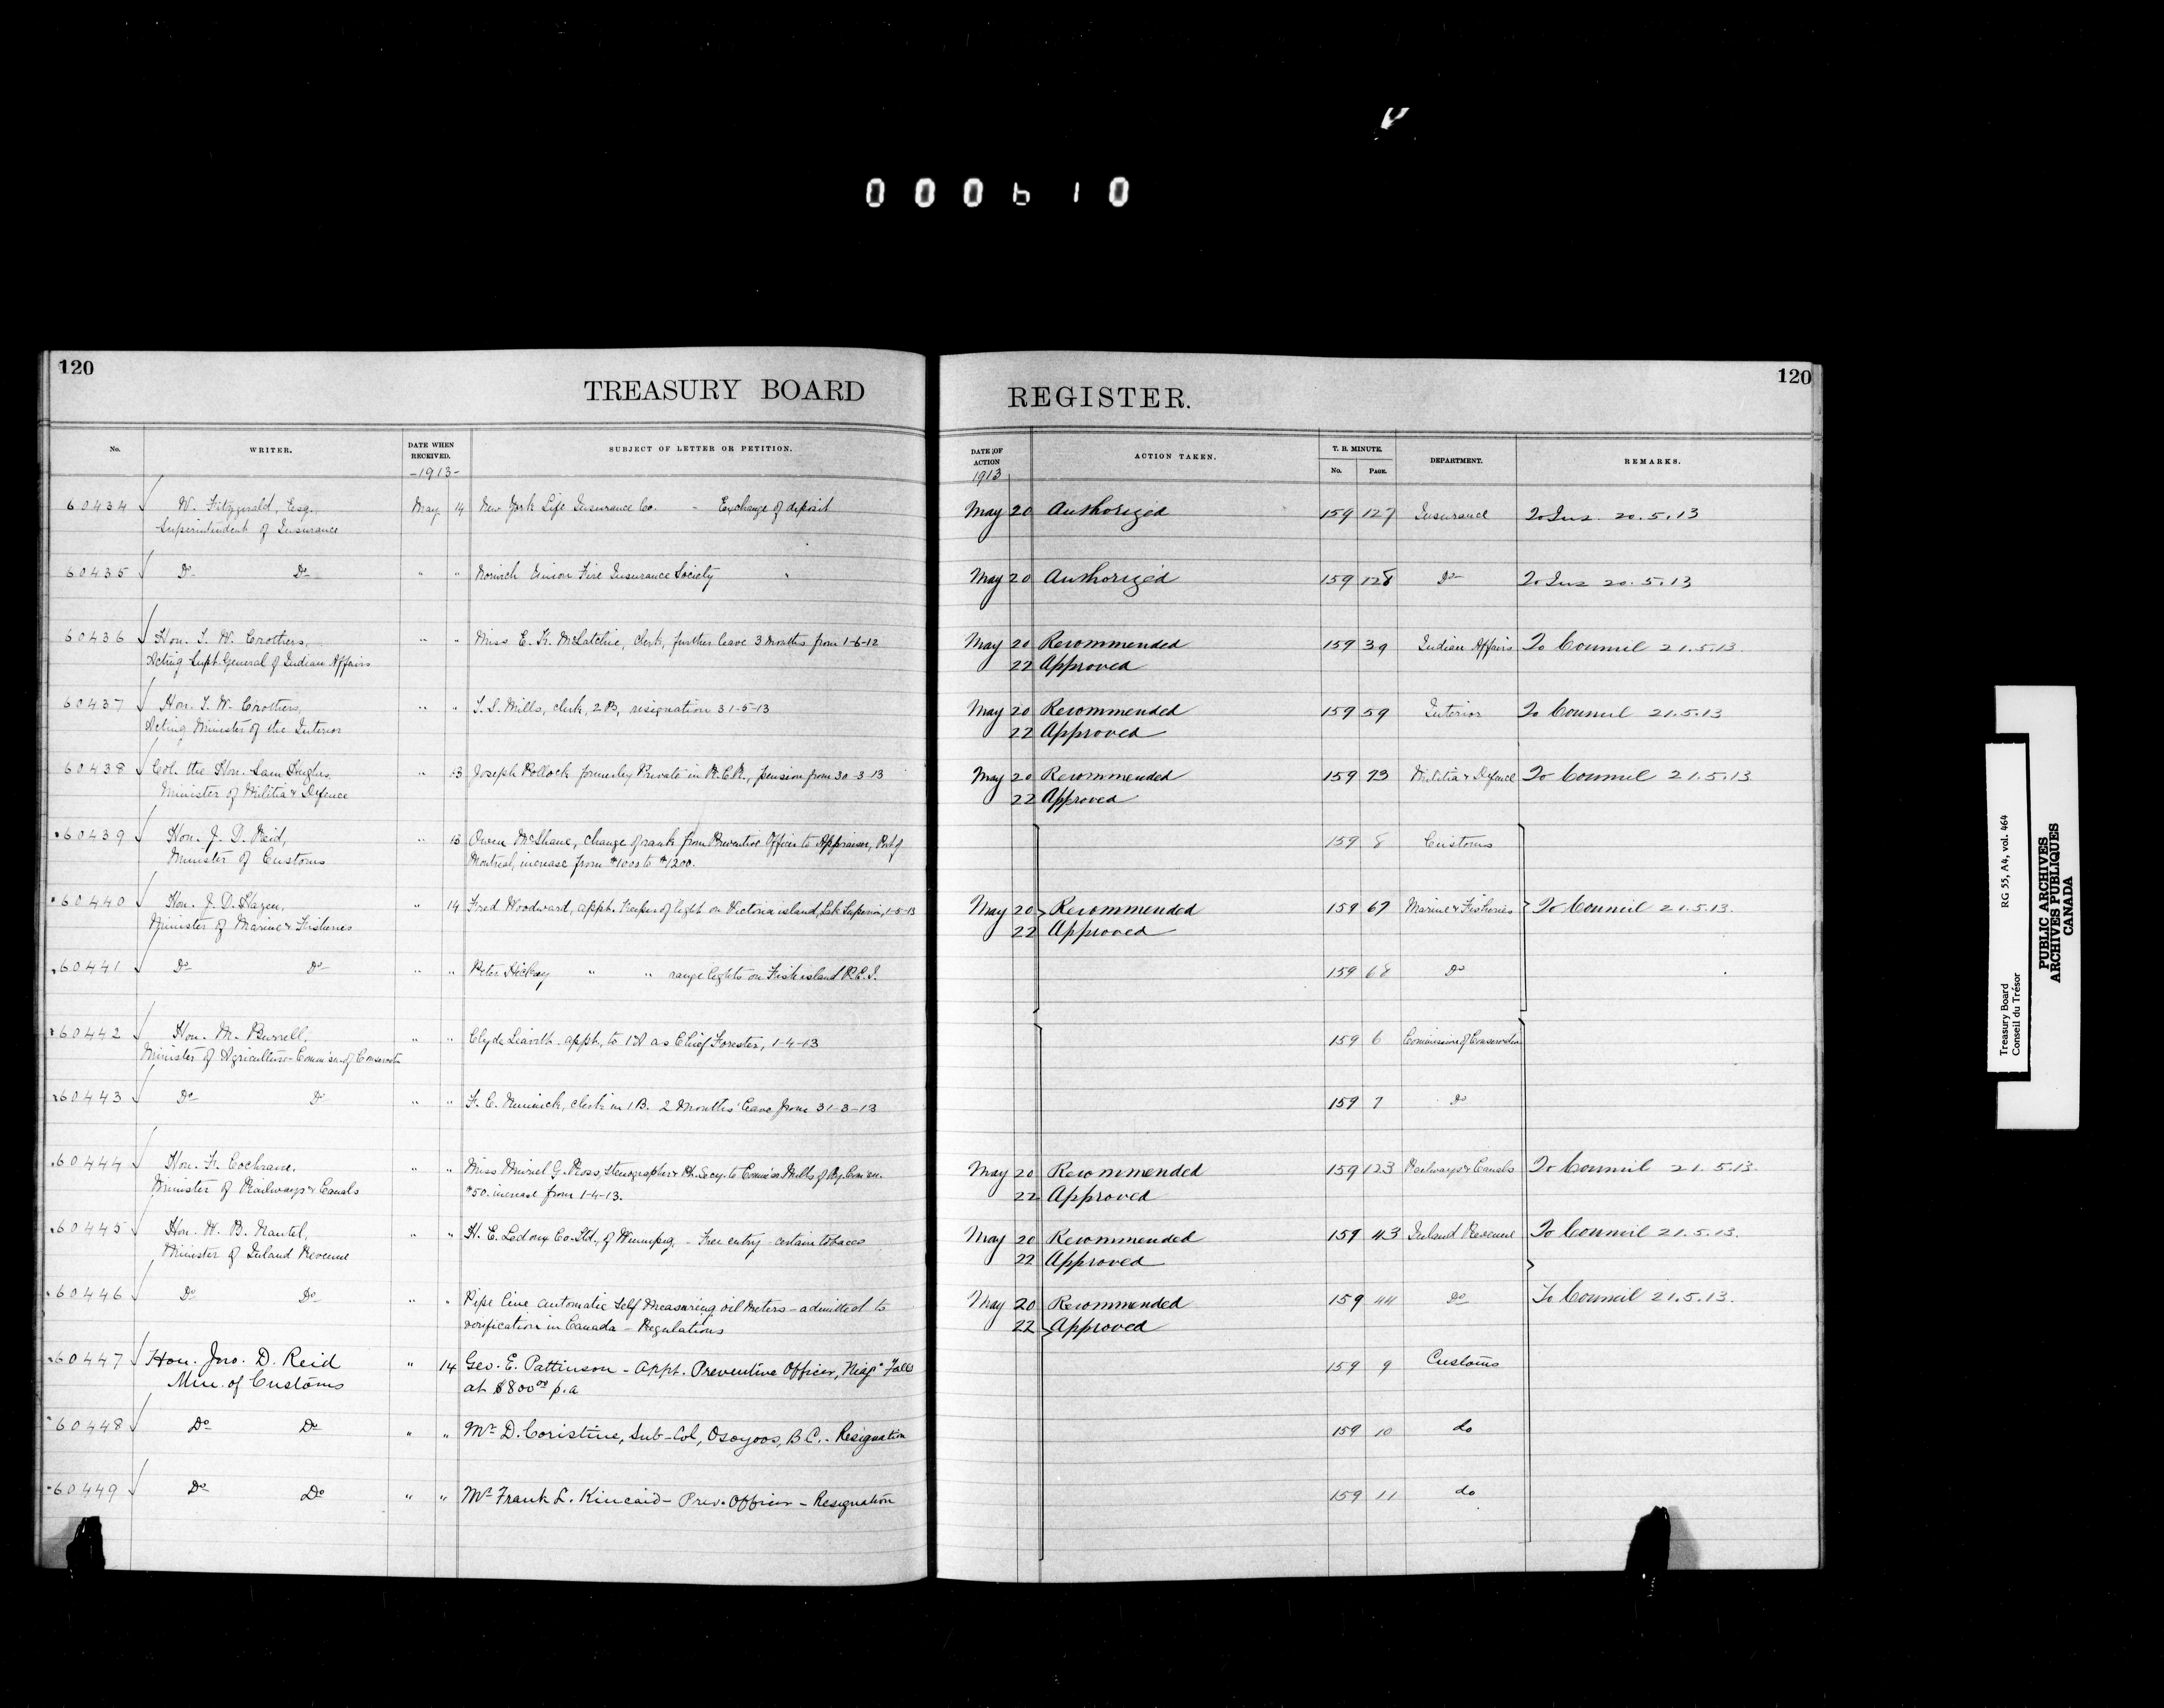 000610
120
TREASURY BOARD
REGISTER.
120
No.
WRITER.
DATE WHEN RECEIVED.
-1913-
SUBJECT OF LETTER OR PETITION.
DATE OF ACTION
1913
ACTION TAKEN.
T. B. MINUTE.
No.
PAGE.
DEPARTMENT.
REMARKS.
60434 W. Fitzgerald, Esq., May 14 New York Life Insurance Co. - Exchange of deposit May 20 Authorized 159 127 Insurance To Ins. 20.5.13
Superintendent of Insurance
60435 Do Do " " Norwich Union Fire Insurance Society " May 20 Authorized 159 128 Do To Ins 20.5.13
60436 Hon. T. W. Crothers, " " Miss E. K. McLatchie, clerk, further leave 3 Months from 1-6-12 May 20 Recommended 159 39 Indian Affairs To Council 21.5.13
Acting Supt. General of Indian Affairs 22 Approved
60437 Hon. T. W. Crothers, " " T. S. Mills, clerk, 2B, resignation 31-5-13 May 20 Recommended 159 59 Interior To Council 21.5.13
Acting Minister of the Interior 22 Approved
60438 Col. the Hon. Sam Hughes, " 13 Joseph Pollock formerly Private in R.C.R., pension from 30-3-13 May 20 Recommended 159 73 Militia & Defence To Council 21.5.13
Minister of Militia & Defence 22 Approved
60439 Hon. J. D. Reid, " 13 Owen McShane, change of rank from Preventive Officer to Appraiser, Port of 159 8 Customs
Minister of Customs Montreal, increase from $1000 to $1200.
60440 Hon. J. D. Hazen, " 14 Fred Woodward, appt. Keeper of light on Victoria island, Lake Superior, 1-5-13 May 20 Recommended 159 67 Marine & Fisheries To Council 21.5.13.
Minister of Marine & Fisheries 22 Approved
60441 Do Do " " Peter Hickey " " range lights on Fish island P.E.I. 159 68 Do
60442 Hon. M. Burrell, " " Clyde Leavitt. appt. to 1A as Chief Forester, 1-4-13 159 6 Commission of Conservation
Minister of Agriculture - Commission of Conservation
60443 Do Do " " F. C. clerk in 1B. 2 Months' leave from 31-3-13 159 7 Do
60444 Hon. F. Cochrane, " " Miss Muriel G. Ross, Stenographer & Pt. Secy. to Mills of Ry. May 20 Recommended 159 123 Railways & Canals To Council 21.5.13.
Minister of Railways & Canals $50. increase from 1-4-13. 22 Approved
60445 Hon. W. B. Nantel, " " H. E. Ledoux Co. Ltd., of Winnipeg, - Free entry - certain tobacco May 20 Recommended 159 43 Inland Revenue To Council 21.5.13.
Minister of Inland Revenue 22 Approved
60446 Do Do " " Pipe line automatic Self Measuring oil Meters - admitted to May 20 Recommended 159 44 Do To Council 21.5.13.
verification in Canada - Regulations 22 Approved
60447 Hon. Jno. D. Reid " 14 Geo. E. Pattinson - Appt. Preventive Officer, Niag'a Falls 159 9 Customs
Min. of Customs at $800.00 p.a
60448 Do Do " " Mr D. Coristine, Sub-Col, Osoyoos, B.C. - Resignation 159 10 do
60449 Do Do " " Mr Frank L. Kincaid - Prev. Officer - Resignation 159 11 do
Treasury Board RG 55, A4, vol. 464
Conseil du Trésor
PUBLIC ARCHIVES
ARCHIVES PUBLIQUES
CANADA